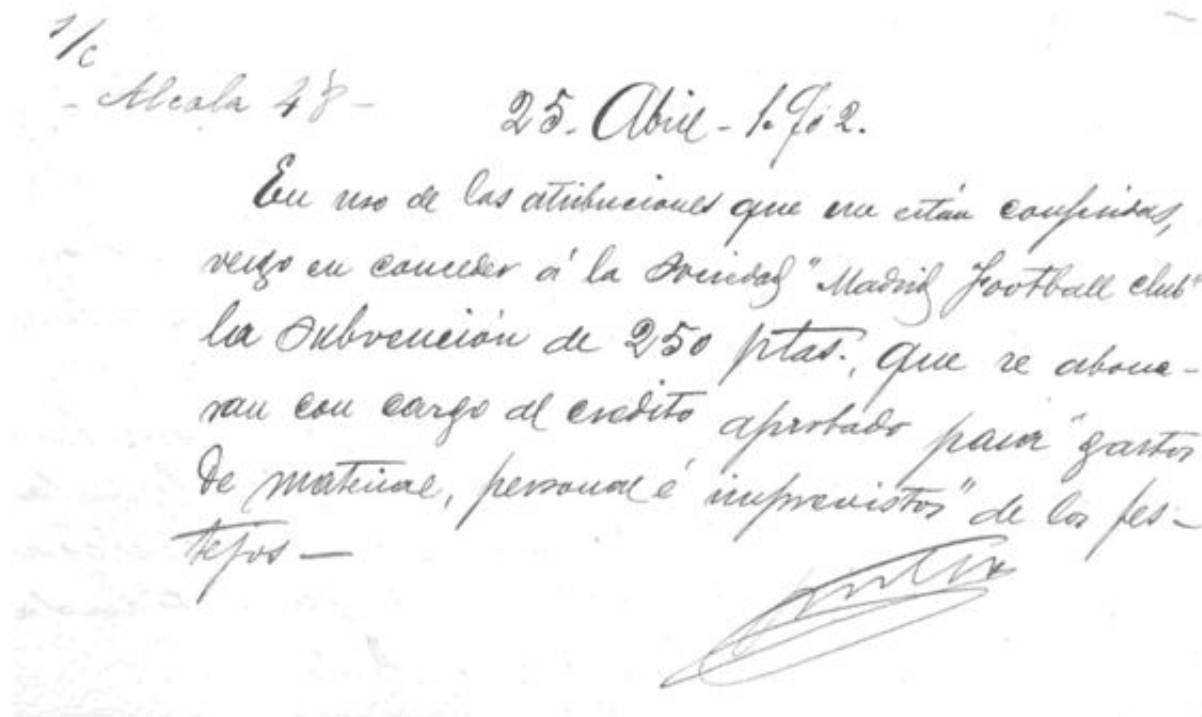 s/c
- Alcala 48 -
25. Abril - 1.902.
En uso de las atribuciones que me están conferidas,
vengo en conceder á la sociedad "Madrid Football club"
la subvención de 250 ptas., que se abona-
ran con cargo al credito aprobado para "gastos
de material, personal é imprevistos" de los fes-
tejos —